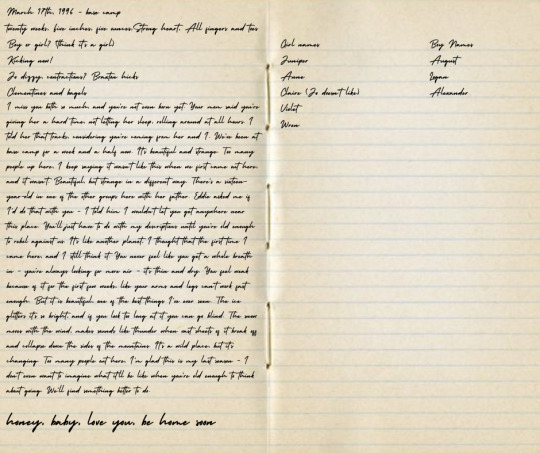 March 17th, 1996 - base camp
twenty weeks. five inches, five ounces. Strong heart. All fingers and toes
Boy or girl? (think it's a girl)
Kicking now!
Jo dizzy, contractions? Braxton hicks
Clementines and bagels
I miss you both so much, and you're not even born yet. Your mom said you're
giving her a hard time, not letting her sleep, rolling around at all hours. I
told her that tracks, considering you're coming from her and I. We've been at
base camp for a week and a half now. It's beautiful and strange. Too many
people up here. I keep saying it wasn't like this when we first came out here,
and it wasn't. Beautiful, but strange in a different way. There's a sixteen-
year-old in one of the other groups here with her father. Eddie asked me if
I'd do that with you - I told him I wouldn't let you get anywhere near
this place. You'll just have to do with my descriptions until you're old enough
to rebel against us. It's like another planet. I thought that the first time I
came here, and I still think it. You never feel like you get a whole breath
in - you're always looking for more air - it's thin and dry. You feel weak
because of it for the first few weeks, like your arms and legs can't work fast
enough. But it is beautiful, one of the best things I've ever seen. The ice
glitters it's so bright, and if you look too long at it you can go blind. The snow
moves with the wind, makes sounds like thunder when vast sheets of it break off
and collapse down the sides of the mountains. It's a wild place, but it's
changing. Too many people out here. I'm glad this is my last season - I
don't even want to imagine what it'll be like when you're old enough to think
about going. We'll find something better to do.
honey, baby, love you, be home soon
Girl names
Juniper
Anne
Claire (Jo doesn't like)
Violet
Wren
Boy Names
August
Logan
Alexander